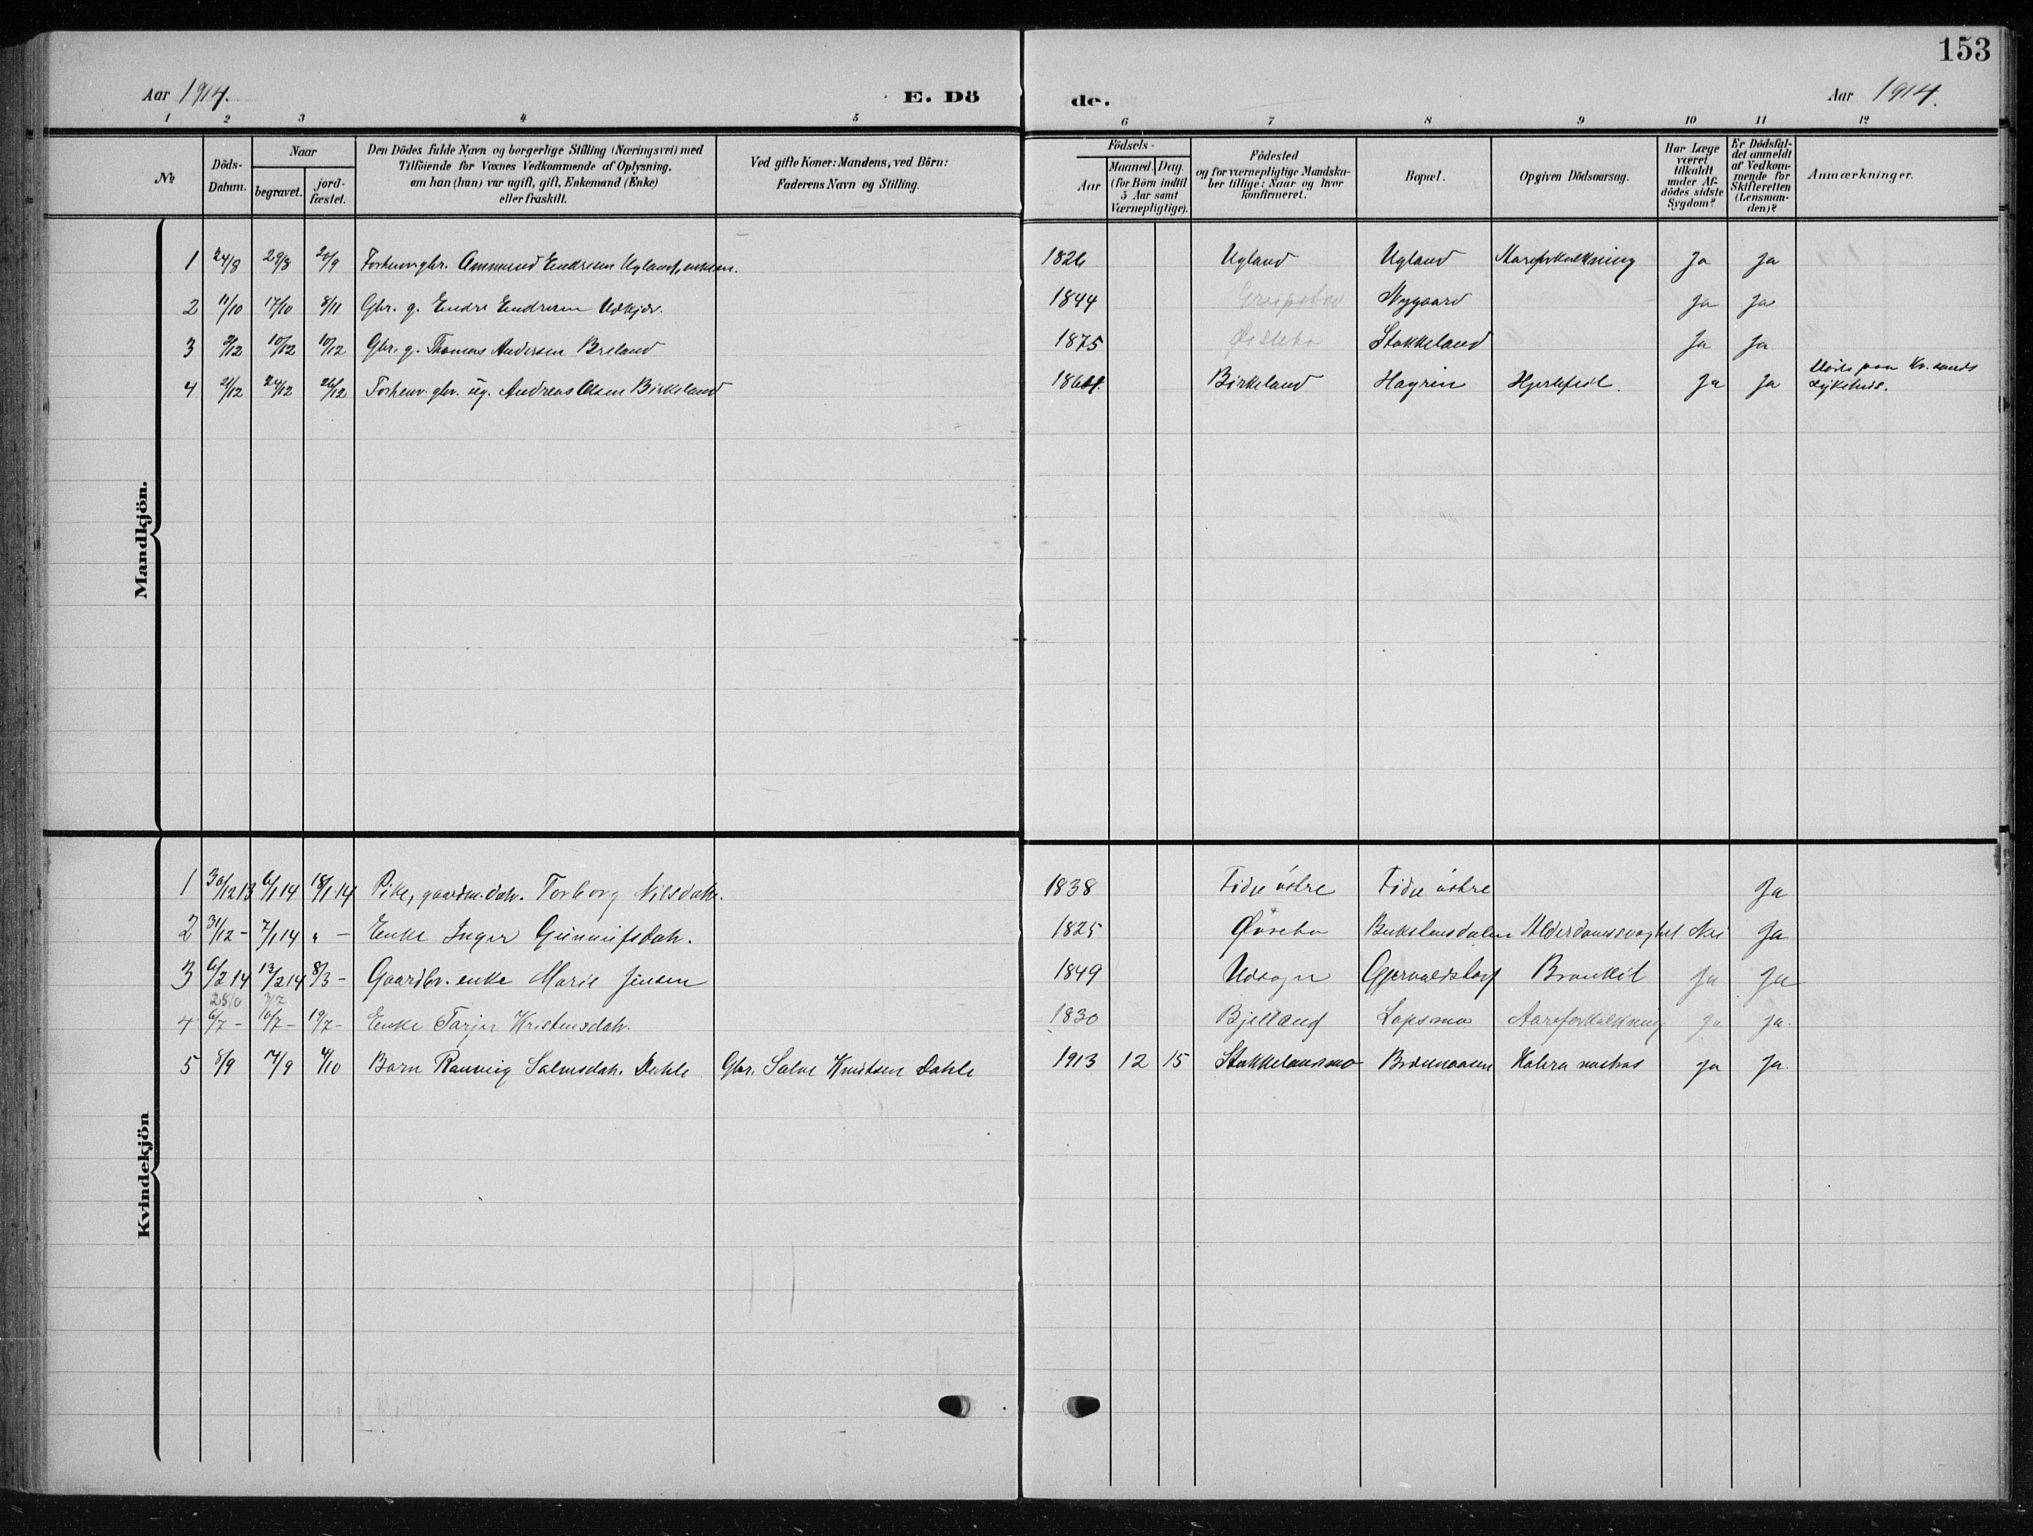 153
Aar 1914. E. Dö de. Aar 1914.
1 2 3 4 5 6 7 8 9 10 11 12
№
Döds-Datum.
Naar
begravet.
jord-fæstet.
Den Dödes fulde Navn og borgerlige Stilling (Næringsvei) med
Tilföiende for Voxnes Vedkommende af Oplysning,
om han (hun) var ugift, gift, Enkemand (Enke)
eller fraskilt.
Ved gifte Koner: Mandens, ved Börn:
Faderens Navn og Stilling.
Födsels-
Aar
Maaned. Dag.
(for Börn indtil
5 Aar samt
Værnepligtige).
Födested
og for værnepligtige Mandska-
ber tillige: Naar og hvor
konfirmeret.
Bopæl.
Opgiven Dödsaarsag.
Har Læge
været
tilkaldt
under Af-
dödes sidste
Sygdom?
Er Dödsfal-
det anmeldt
af Vedkom-
mende for
Skifteretten
(Lensman-
den)?
Anmærkninger.
Mandkjön.
1 24/8 29/8 20/9 Forhenv. gbr. Ommund Endresen Ugland, enkem. 1826 Ugland Ugland Aareforkalkning Ja Ja
2 11/10 17/10 8/11 Gbr. g. Endre Endresen 1844 Greipstad Nygaard Ja Ja
3 3/12 10/12 10/12 Gbr. g. Thomas Andersen Breland 1875 Øislebø Stokkeland Ja Ja
4 21/12 24/12 26/12 Forhenv. gbr. ug. Andreas Olsen Birkeland Birkeland Høyren Hjertefeil. Ja Ja Døde paa Kr.sands
Sykehus.
Kvindekjön
1 30/12 13 6/1 14 18/1 14 Pike, gaardm.datr. Torborg Nilsdatr. 1838 Fidje östre Fidje östre Ja
2 31/12 – 7/1 14 „ – Enke Inger Gunnufsdatr. 1825 Øvrebø Alderdomssvaghet Nei Ja
3 6/2 14 13/2 14 8/3 – Gaardbr. enke Marie Jensen 1849 Udsogn Gjervoldstad Bronkit Ja Ja
4 6/7 – 10/7 – 19/7 – Enke Tarjer Kristensdatr. 1830 Bjelland Lopsmo Aareforkalkning Ja Ja.
5 8/9 14/9 4/10 Barn Rannveig Salvesdatr. Dahle Gbr. Salve Knutsen Dahle 1913 12 15 Stokkelansmo Brønnaasen Kolera nostras Ja Ja.